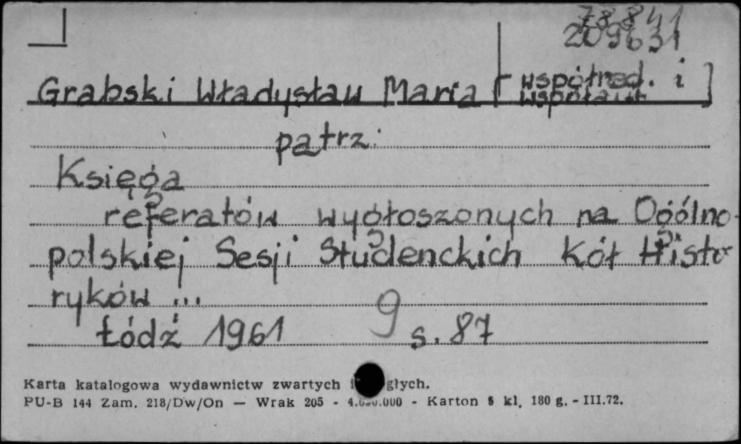 78841
209631
Grabski Władysław Maria [współred. i
współaut.]
patrz:
Księga
referatów wygłoszonych na Ogólno-
polskiej Sesji Studenckich Kół Histo-
ryków ...
Łódź 1961 9 s. 87
Karta katalogowa wydawnictw zwartych i
PU-B 144 Zam. 218/Dw/On — Wrak 205 - - Karton kl, 180 g. - III.72.